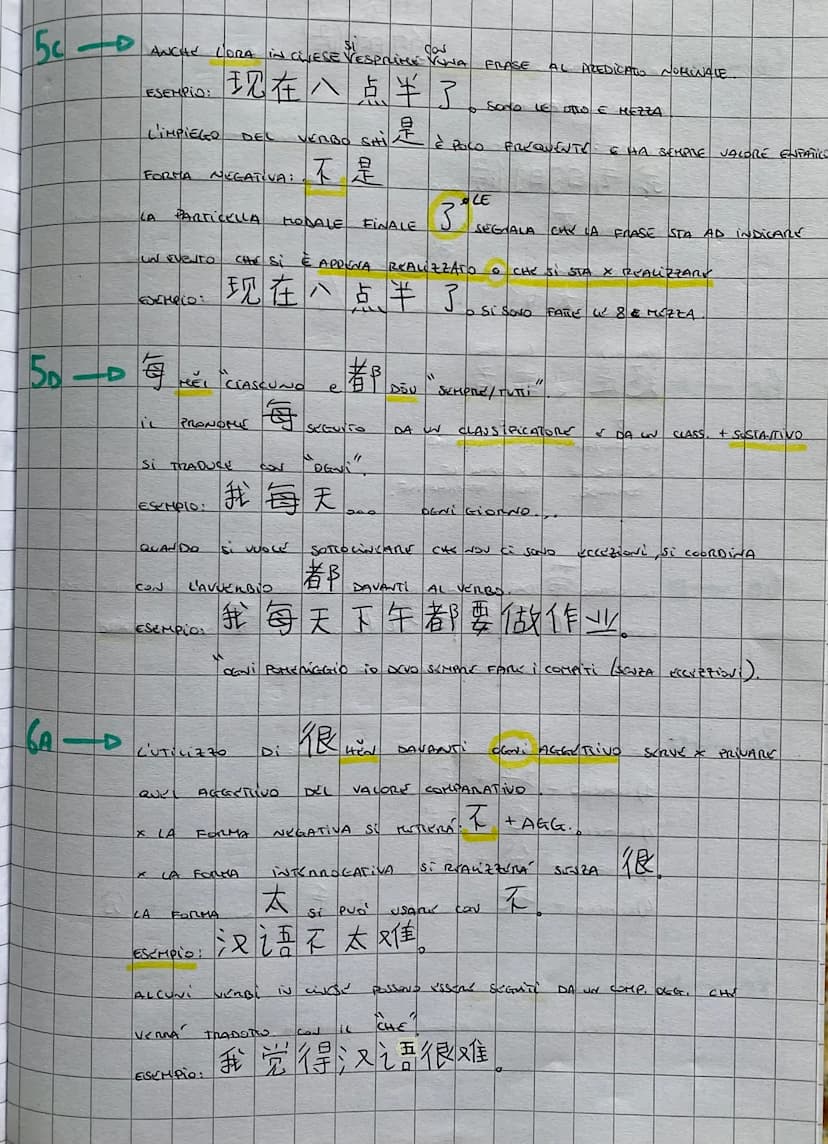 5C → ANCHE L'ORA IN CINESE SI ESPRIME CON UNA FRASE AL PREDICATO NOMINALE.
ESEMPIO: 现在八点半了。SONO LE OTTO E MEZZA
L'IMPIEGO DEL VERBO SHÌ 是 È POCO FREQUENTE E HA SEMPRE VALORE ENFATICO
FORMA NEGATIVA: 不是
LA PARTICELLA MODALE FINALE 了 • LE SEGNALA CHE LA FRASE STA AD INDICARE
UN EVENTO CHE SI È APPENA REALIZZATO O CHE SI STA X REALIZZARE
ESEMPIO: 现在八点半了。SI SONO FATTE LE 8 E MEZZA.
5D → 每 MĚI "CIASCUNO E 都 DŌU "SEMPRE/TUTTI".
IL PRONOME 每 SEGUITO DA UN CLASSIFICATORE E DA UN CLASS. + SOSTANTIVO
SI TRADUCE CON "OGNI".
ESEMPIO: 我每天... OGNI GIORNO...
QUANDO SI VUOLE SOTTOLINEARE CHE NON CI SONO ECCEZIONI, SI COORDINA
CON L'AVVERBIO 都 DAVANTI AL VERBO.
ESEMPIO: 我每天下午都要做作业。
"OGNI POMERIGGIO IO DEVO SEMPRE FARE I COMPITI (SENZA ECCEZIONI).
6A → L'UTILIZZO DI 很 HĚN DAVANTI OGNI AGGETTIVO SERVE X PRIVARE
QUEL AGGETTIVO DEL VALORE COMPARATIVO.
X LA FORMA NEGATIVA SI METTERÁ: 不 + AGG.
X LA FORMA INTERROGATIVA SI REALIZZERÁ SENZA 很.
LA FORMA 太 SI PUÓ USARE CON 不.
ESEMPIO: 汉语不太难。
ALCUNI VERBI IN CINESE POSSONO ESSERE SEGUITI DA UN COMP. OGG. CHE
VERRÁ TRADOTTO CON IL "CHE"
ESEMPIO: 我觉得汉语很难。